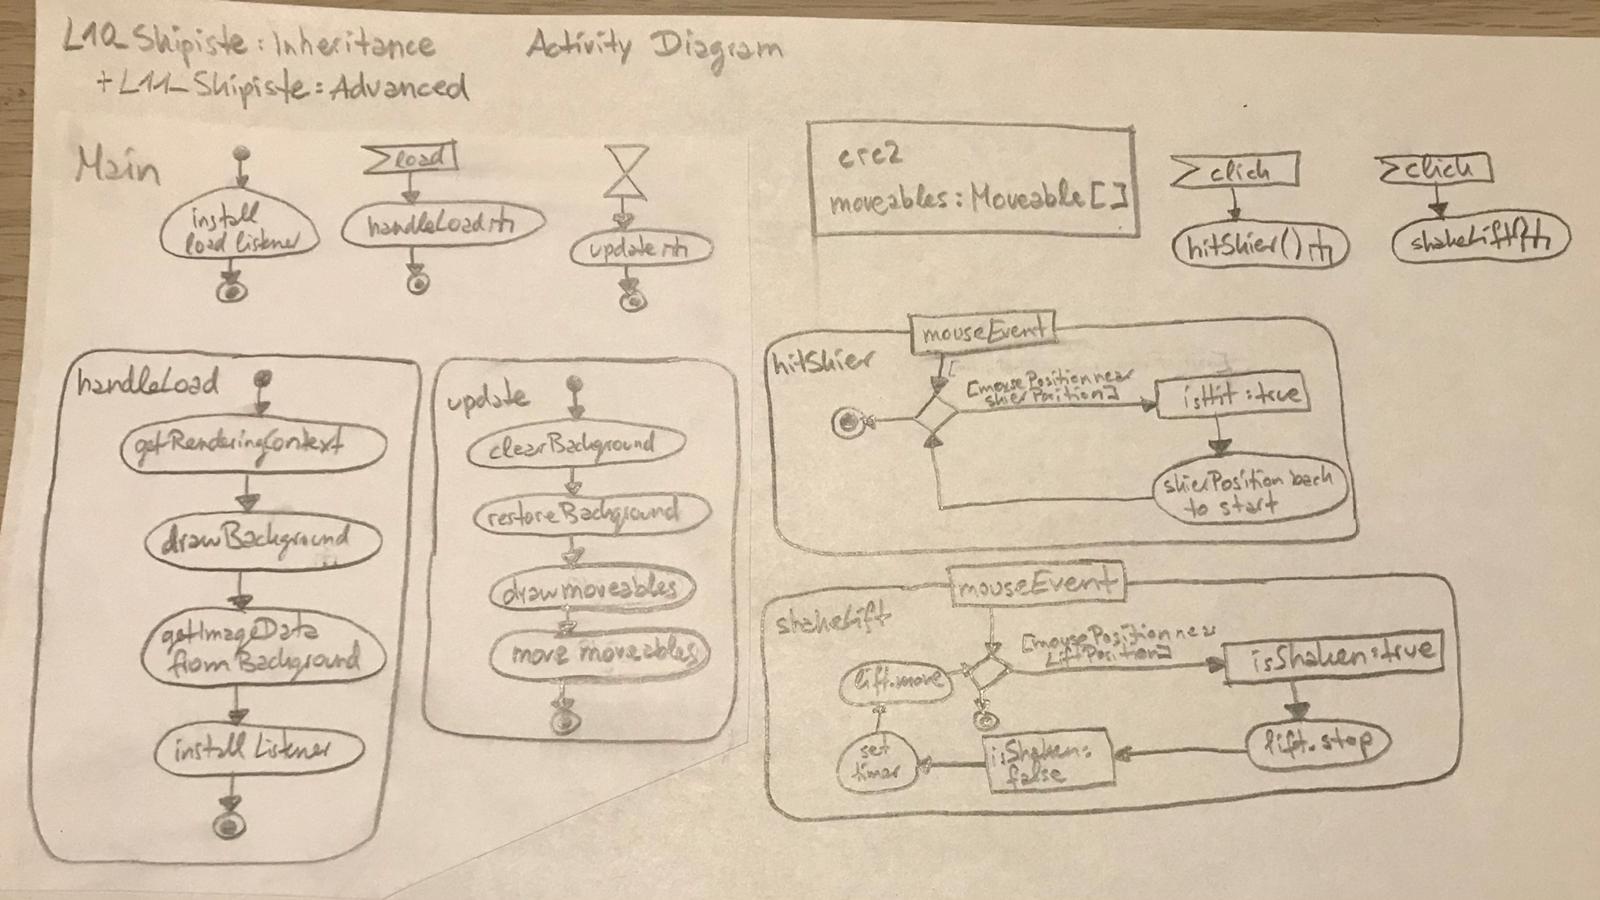 L10_Skipiste: Inheritance
+ L11_Skipiste: Advanced
Activity Diagram
Main
install
load listener
load
handleLoad
update
crc2
moveables: Moveable[]
click
hitSkier()
click
shakeLift()
handleLoad
getRenderingContext
drawBackground
getImageData
fromBackground
install Listener
update
clearBackground
restoreBackground
draw moveables
move moveables
hitSkier
mouseEvent
[mousePosition near
skierPosition]
isHit: true
skierPosition back
to start
shakeLift
mouseEvent
[mousePosition near
LiftPosition]
isShaken: true
lift.stop
isShaken:
false
set
timer
lift.move